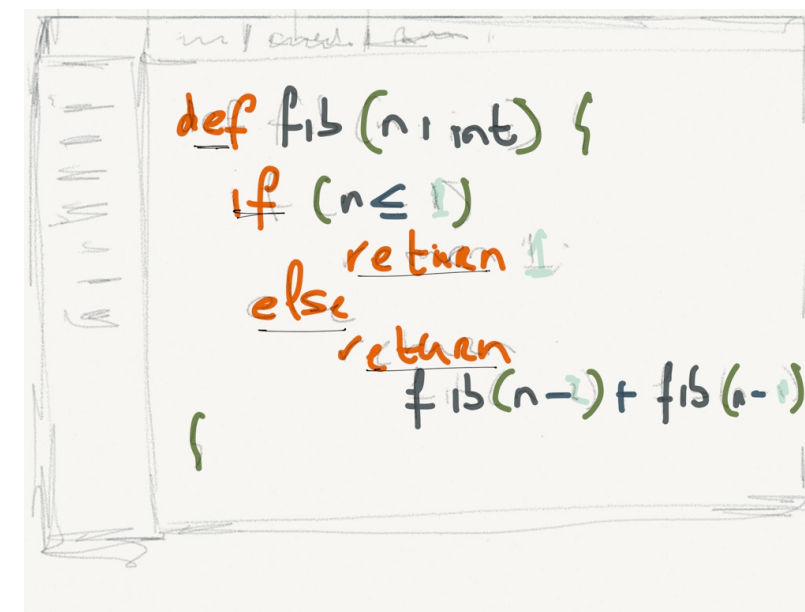 def fib (n : int) {
if (n ≤ 1)
return 1
else
return
fib(n-2) + fib(n-1)
}